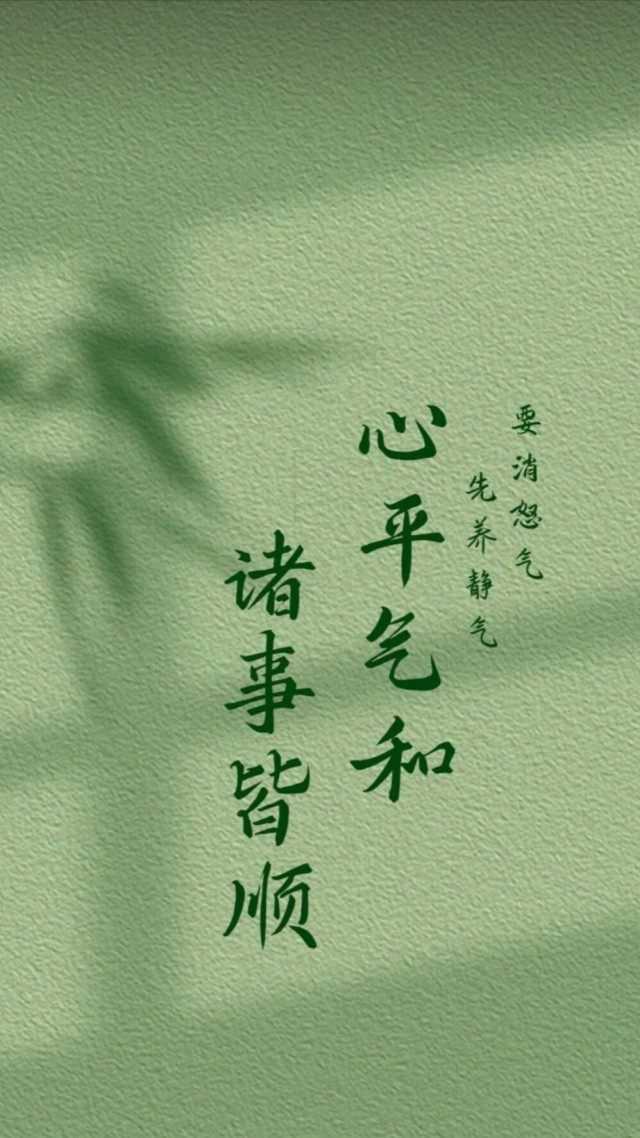 要消怒气
先养静气
心平气和
诸事皆顺